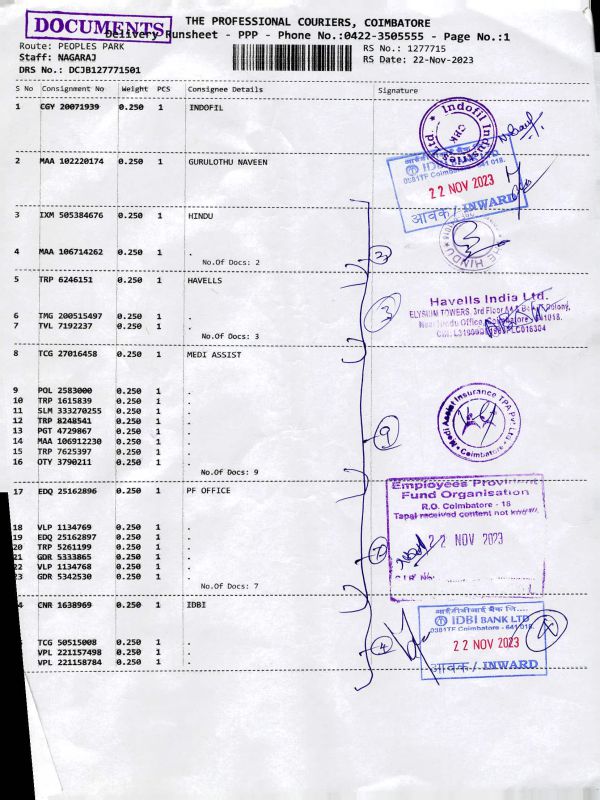 DOCUMENTS
THE PROFESSIONAL COURIERS, COIMBATORE
Delivery Runsheet - PPP - Phone No.:0422-3505555 - Page No.:1
Route: PEOPLES PARK
RS No.: 1277715
Staff: NAGARAJ
RS Date: 22-Nov-2023
DRS No.: DCJB127771501
S No Consignment No Weight PCS Consignee Details Signature
1 CGY 20071939 0.250 1 INDOFIL
Indofil Industries
CBK
2 MAA 102220174 0.250 1 GURULOTHU NAVEEN
IDBI
22 NOV 2023
आवक / INWARD
3 IXM 505384676 0.250 1 HINDU
THE HINDU
4 MAA 106714262 0.250 1 .
No.Of Docs: 2
2
5 TRP 6246151 0.250 1 HAVELLS
Havells India Ltd.
ELYSIUM TOWERS, 3rd Floor
Near Hindu Office, Coimbatore
3
6 TMG 200515497 0.250 1 .
7 TVL 7192237 0.250 1 .
No.Of Docs: 3
8 TCG 27016458 0.250 1 MEDI ASSIST
Medi Assist Insurance TPA Pvt Ltd
Coimbatore
9 POL 2583000 0.250 1 .
10 TRP 1615839 0.250 1 .
11 SLM 333270255 0.250 1 .
12 TRP 8248541 0.250 1 .
13 PGT 4729867 0.250 1 .
14 MAA 106912230 0.250 1 .
15 TRP 7625397 0.250 1 .
16 OTY 3790211 0.250 1 .
No.Of Docs: 9
9
17 EDQ 25162896 0.250 1 PF OFFICE
Employees Provident
Fund Organisation
R.O. Coimbatore - 18
Tapal received content not known
22 NOV 2023
18 VLP 1134769 0.250 1 .
19 EDQ 25162897 0.250 1 .
20 TRP 5261199 0.250 1 .
21 GDR 5333865 0.250 1 .
22 VLP 1134768 0.250 1 .
23 GDR 5342530 0.250 1 .
No.Of Docs: 7
7
4 CNR 1638969 0.250 1 IDBI
IDBI BANK LTD
22 NOV 2023
आवक / INWARD
4
TCG 50515008 0.250 1 .
VPL 221157498 0.250 1 .
VPL 221158784 0.250 1 .
4